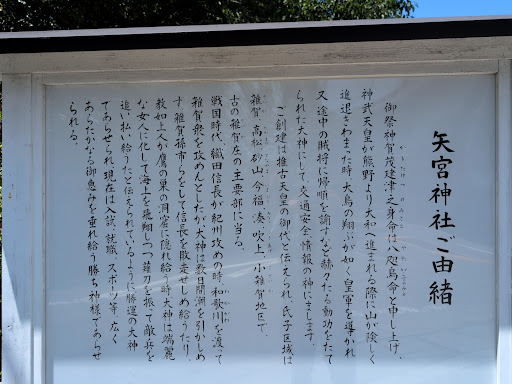 矢宮神社ご由緒
御祭神賀茂建津之身命は、八咫烏命と申し上げ、
神武天皇が熊野より大和へ進まれる際に山が険しく
進退きわまった時、大鳥の翔ぶが如く皇軍を導かれ
又途中の賊将に帰順を諭すなど赫々たる勲功をたて
られた大神にして、交通安全、情報の神にまします。
ご創建は推古天皇の御代と伝えられ、氏子区域は
雑賀、高松、砂山、今福、湊、吹上、小雑賀地区で、
古の雑賀庄の主要部に当る。
戦国時代、織田信長が紀州攻めの時、和歌川を渡って
雑賀衆を攻めんとしたが、大神は数日間潮を引かしめ
ず、雑賀孫市らをして信長を敗走せしめ給うたり、
教如上人が鷹の巣の洞窟に隠れ給う時、大神は端麗
な女人に化して海上を飛翔しつつ薙刀を振って敵兵を
追い払い給うたと伝えられているように勝運の大神
であらせられ、現在は入試、就職、スポーツ等、広く
あらたかなる御恵みを垂れ給う勝ち神様であらせ
られる。